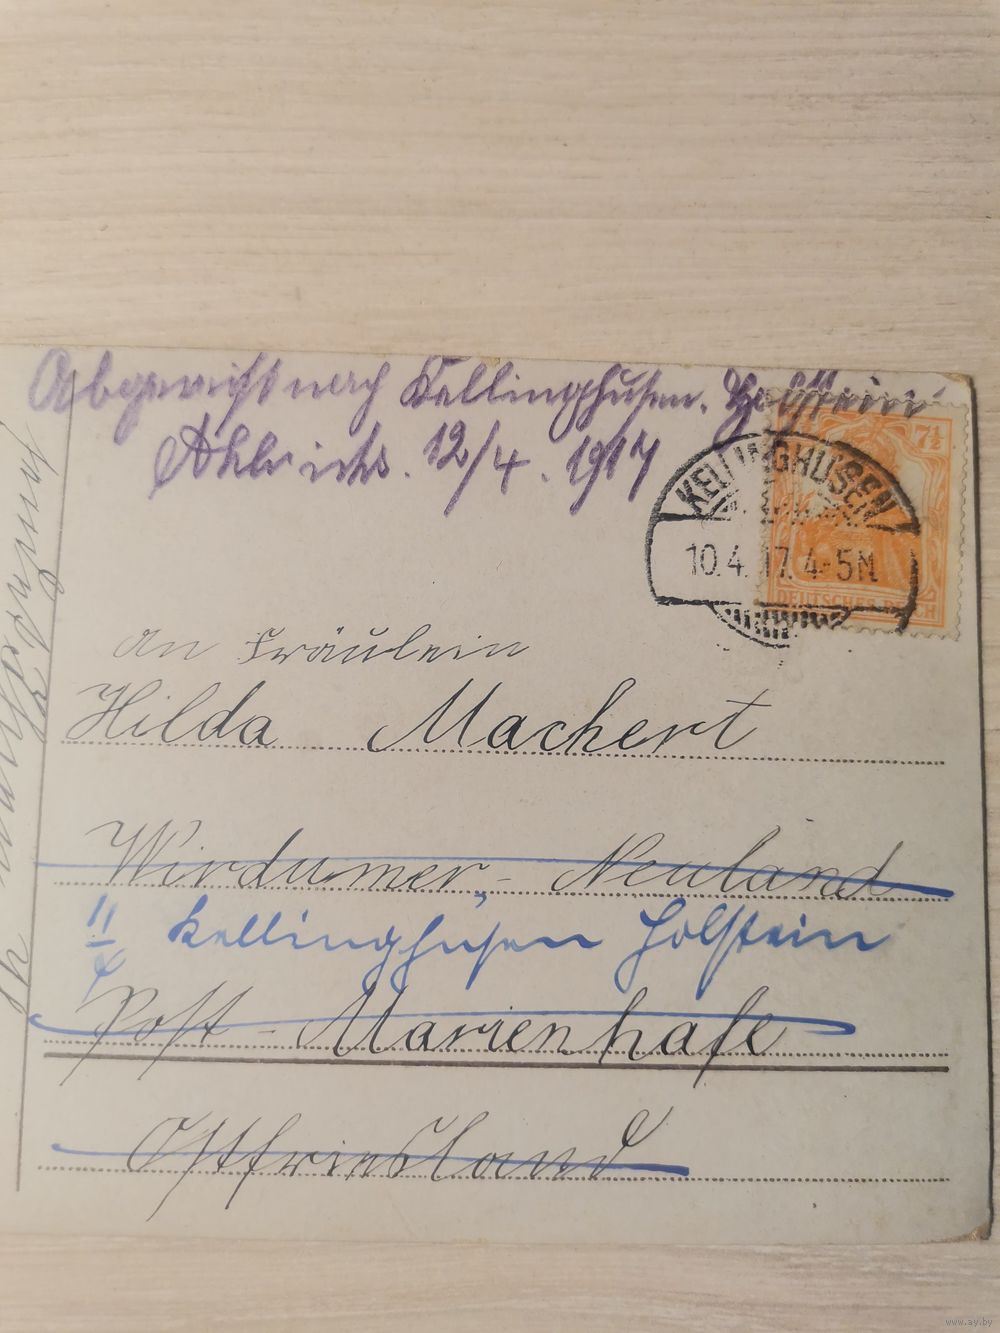 Abgereist nach Kellinghusen. Holstein
Ahlrichs. 12/4. 1917
7½
KELLINGHUSEN
10.4.17. 4-5N
DEUTSCHES REICH
An Fräulein
Hilda Machert
Wirdumer-Neuland
11/4 Kellinghusen Holstein
Post-Marienhafe
Ostfriesland
www.ay.by